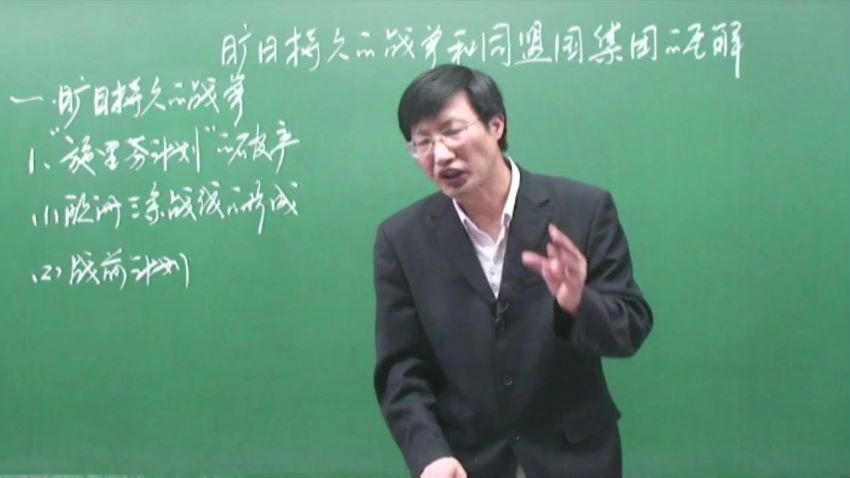 旷日持久的战争和同盟国集团的瓦解
一.旷日持久的战争
1、“施里芬计划”的破产
(1)欧洲三条战线的形成
(2)战前计划